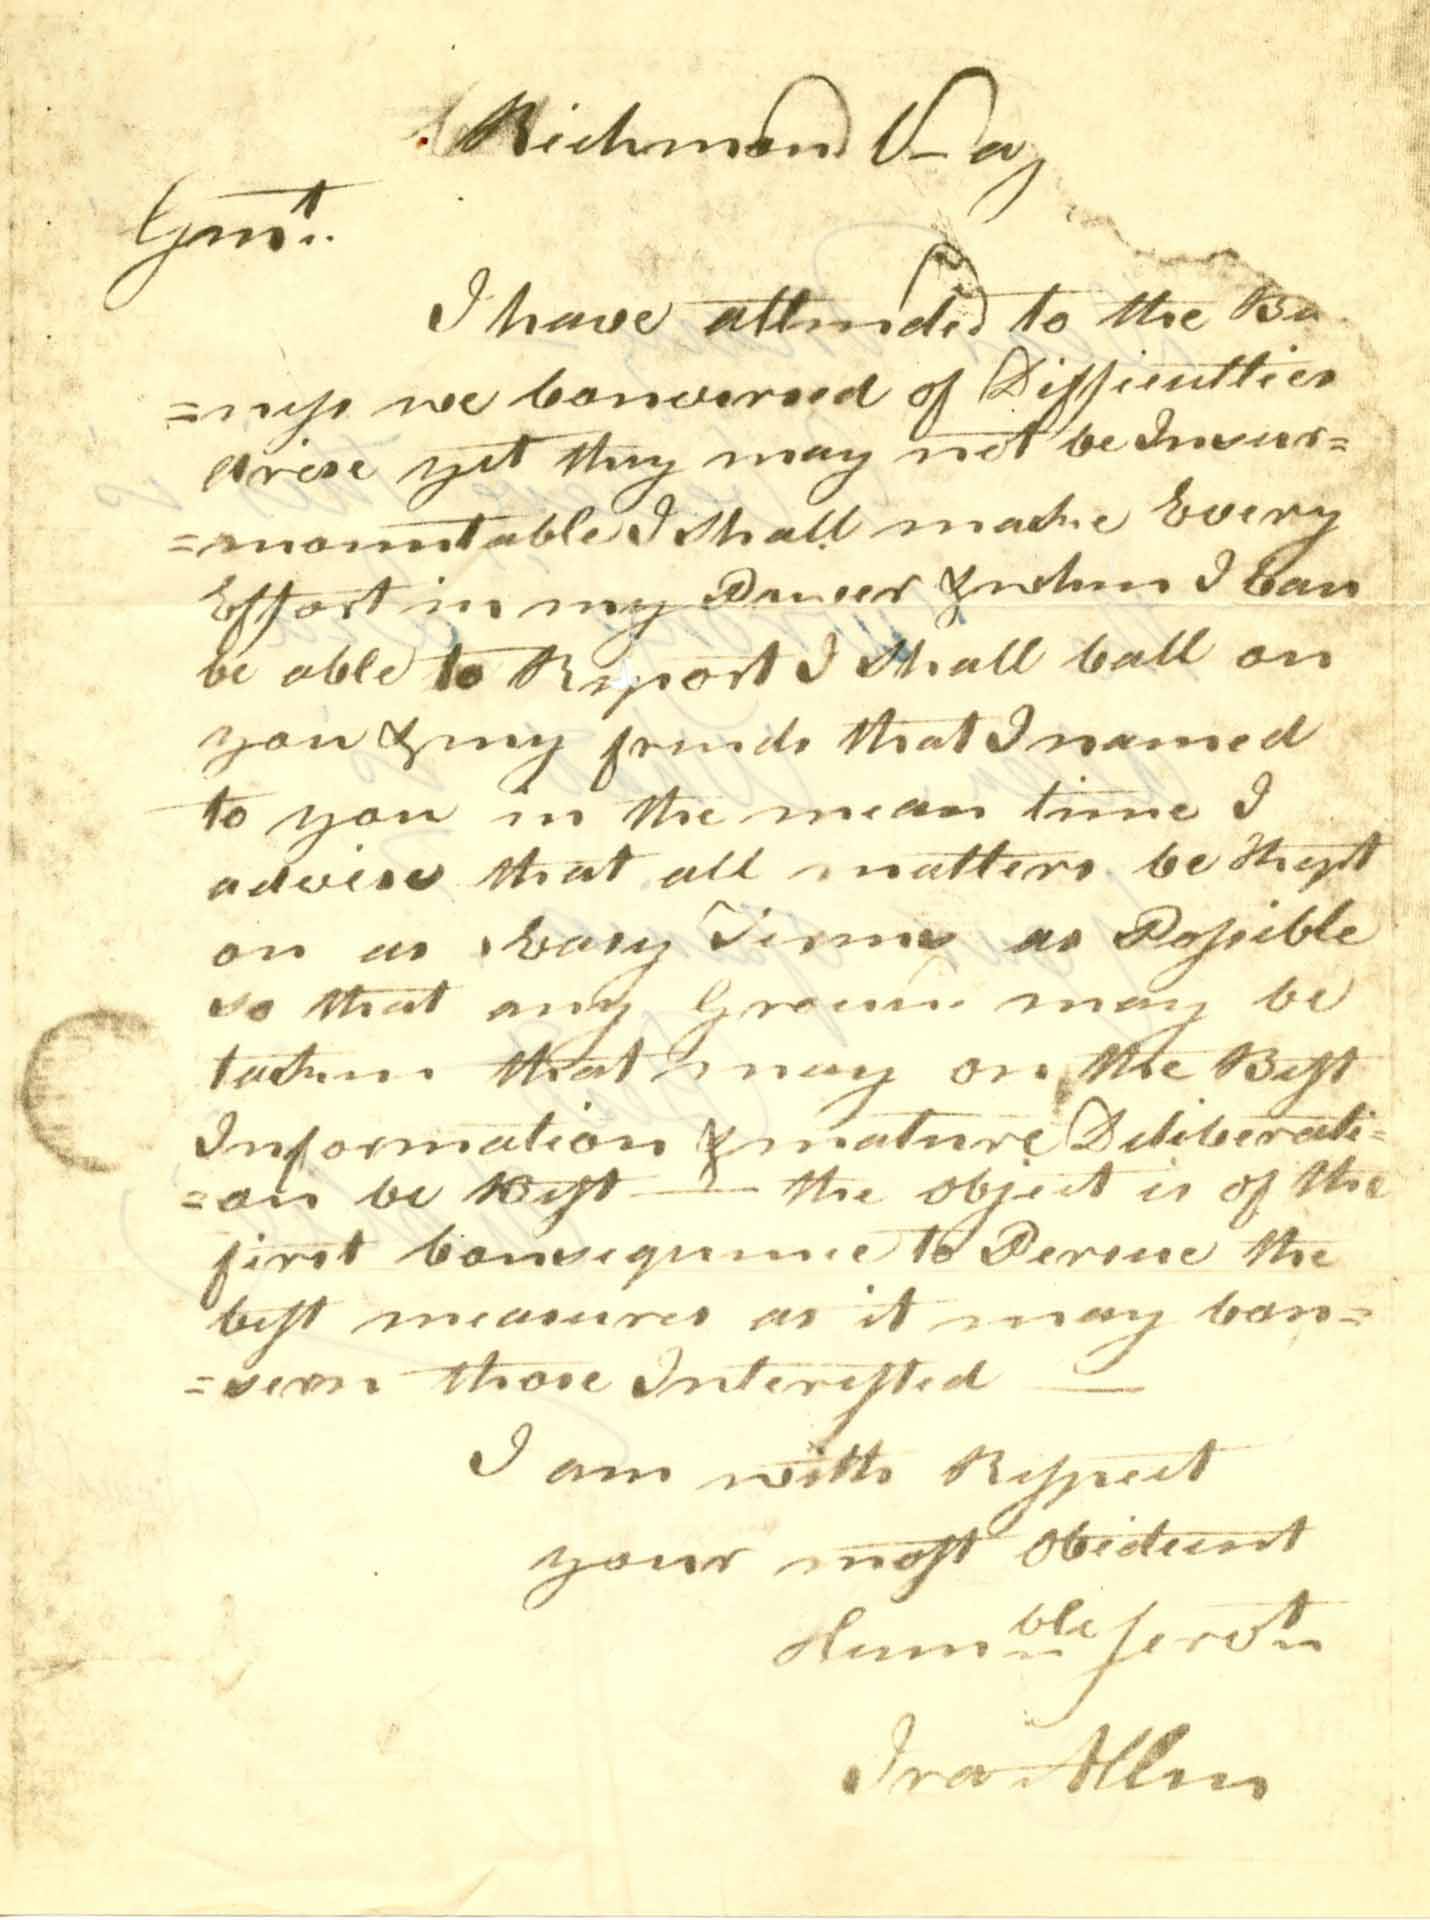 Richmond
Gent.
I have attended to the Bu
=ness we Conversed of Difficulties
arise yet they may not be Insur=
=mountable I Shall make Every
Effort in my Power & when I Can
be able to Report I Shall Call on
you & my frinds that I named
to you in the mean time I
advise that all matters be Kept
on as Easy Terms as Possible
so that any Groun may be
taken that may on the Best
Information & mature Deliberati=
=on be Best — the object is of the
first Consequence to Persue the
best measures as it may Con=
=sern those Interested —
I am with Respect
your most Obedient
Humble Servt
Ira Allen